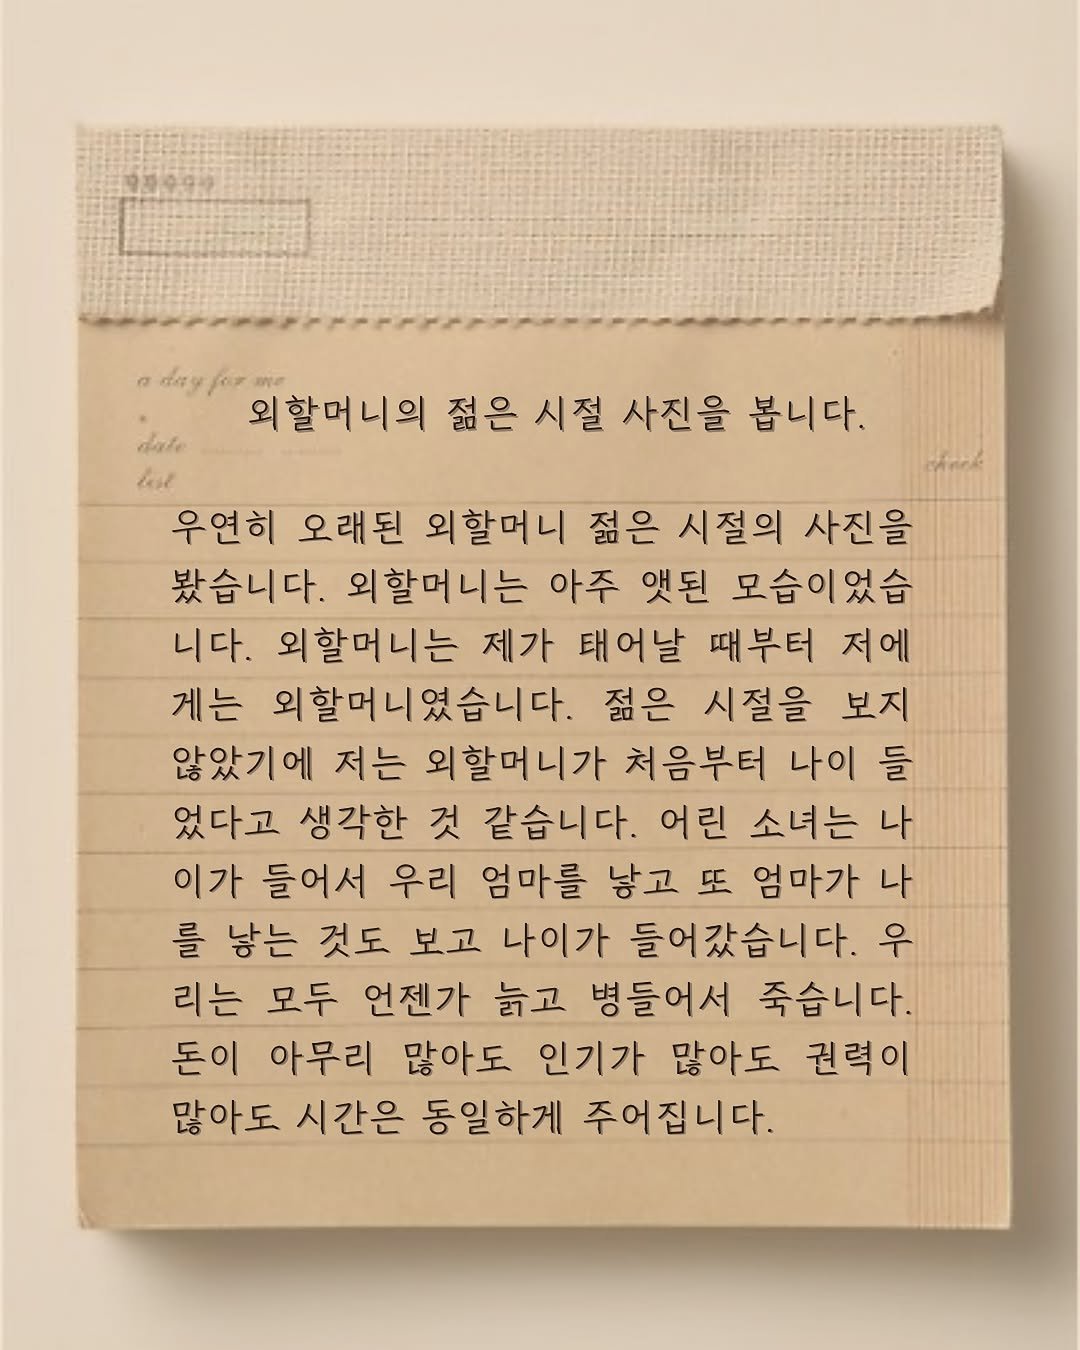 a day for me
외할머니의 젊은 시절 사진을 봅니다.
date
list
check
우연히 오래된 외할머니 젊은 시절의 사진을
봤습니다. 외할머니는 아주 앳된 모습이었습
니다. 외할머니는 제가 태어날 때부터 저에
게는 외할머니였습니다. 젊은 시절을 보지
않았기에 저는 외할머니가 처음부터 나이 들
었다고 생각한 것 같습니다. 어린 소녀는 나
이가 들어서 우리 엄마를 낳고 또 엄마가 나
를 낳는 것도 보고 나이가 들어갔습니다. 우
리는 모두 언젠가 늙고 병들어서 죽습니다.
돈이 아무리 많아도 인기가 많아도 권력이
많아도 시간은 동일하게 주어집니다.